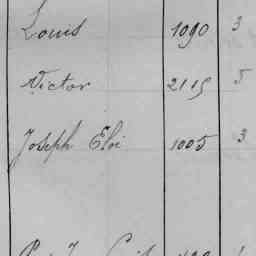 Louis 1090 3
Victor 2115 5
Joseph Eloi 1005 3